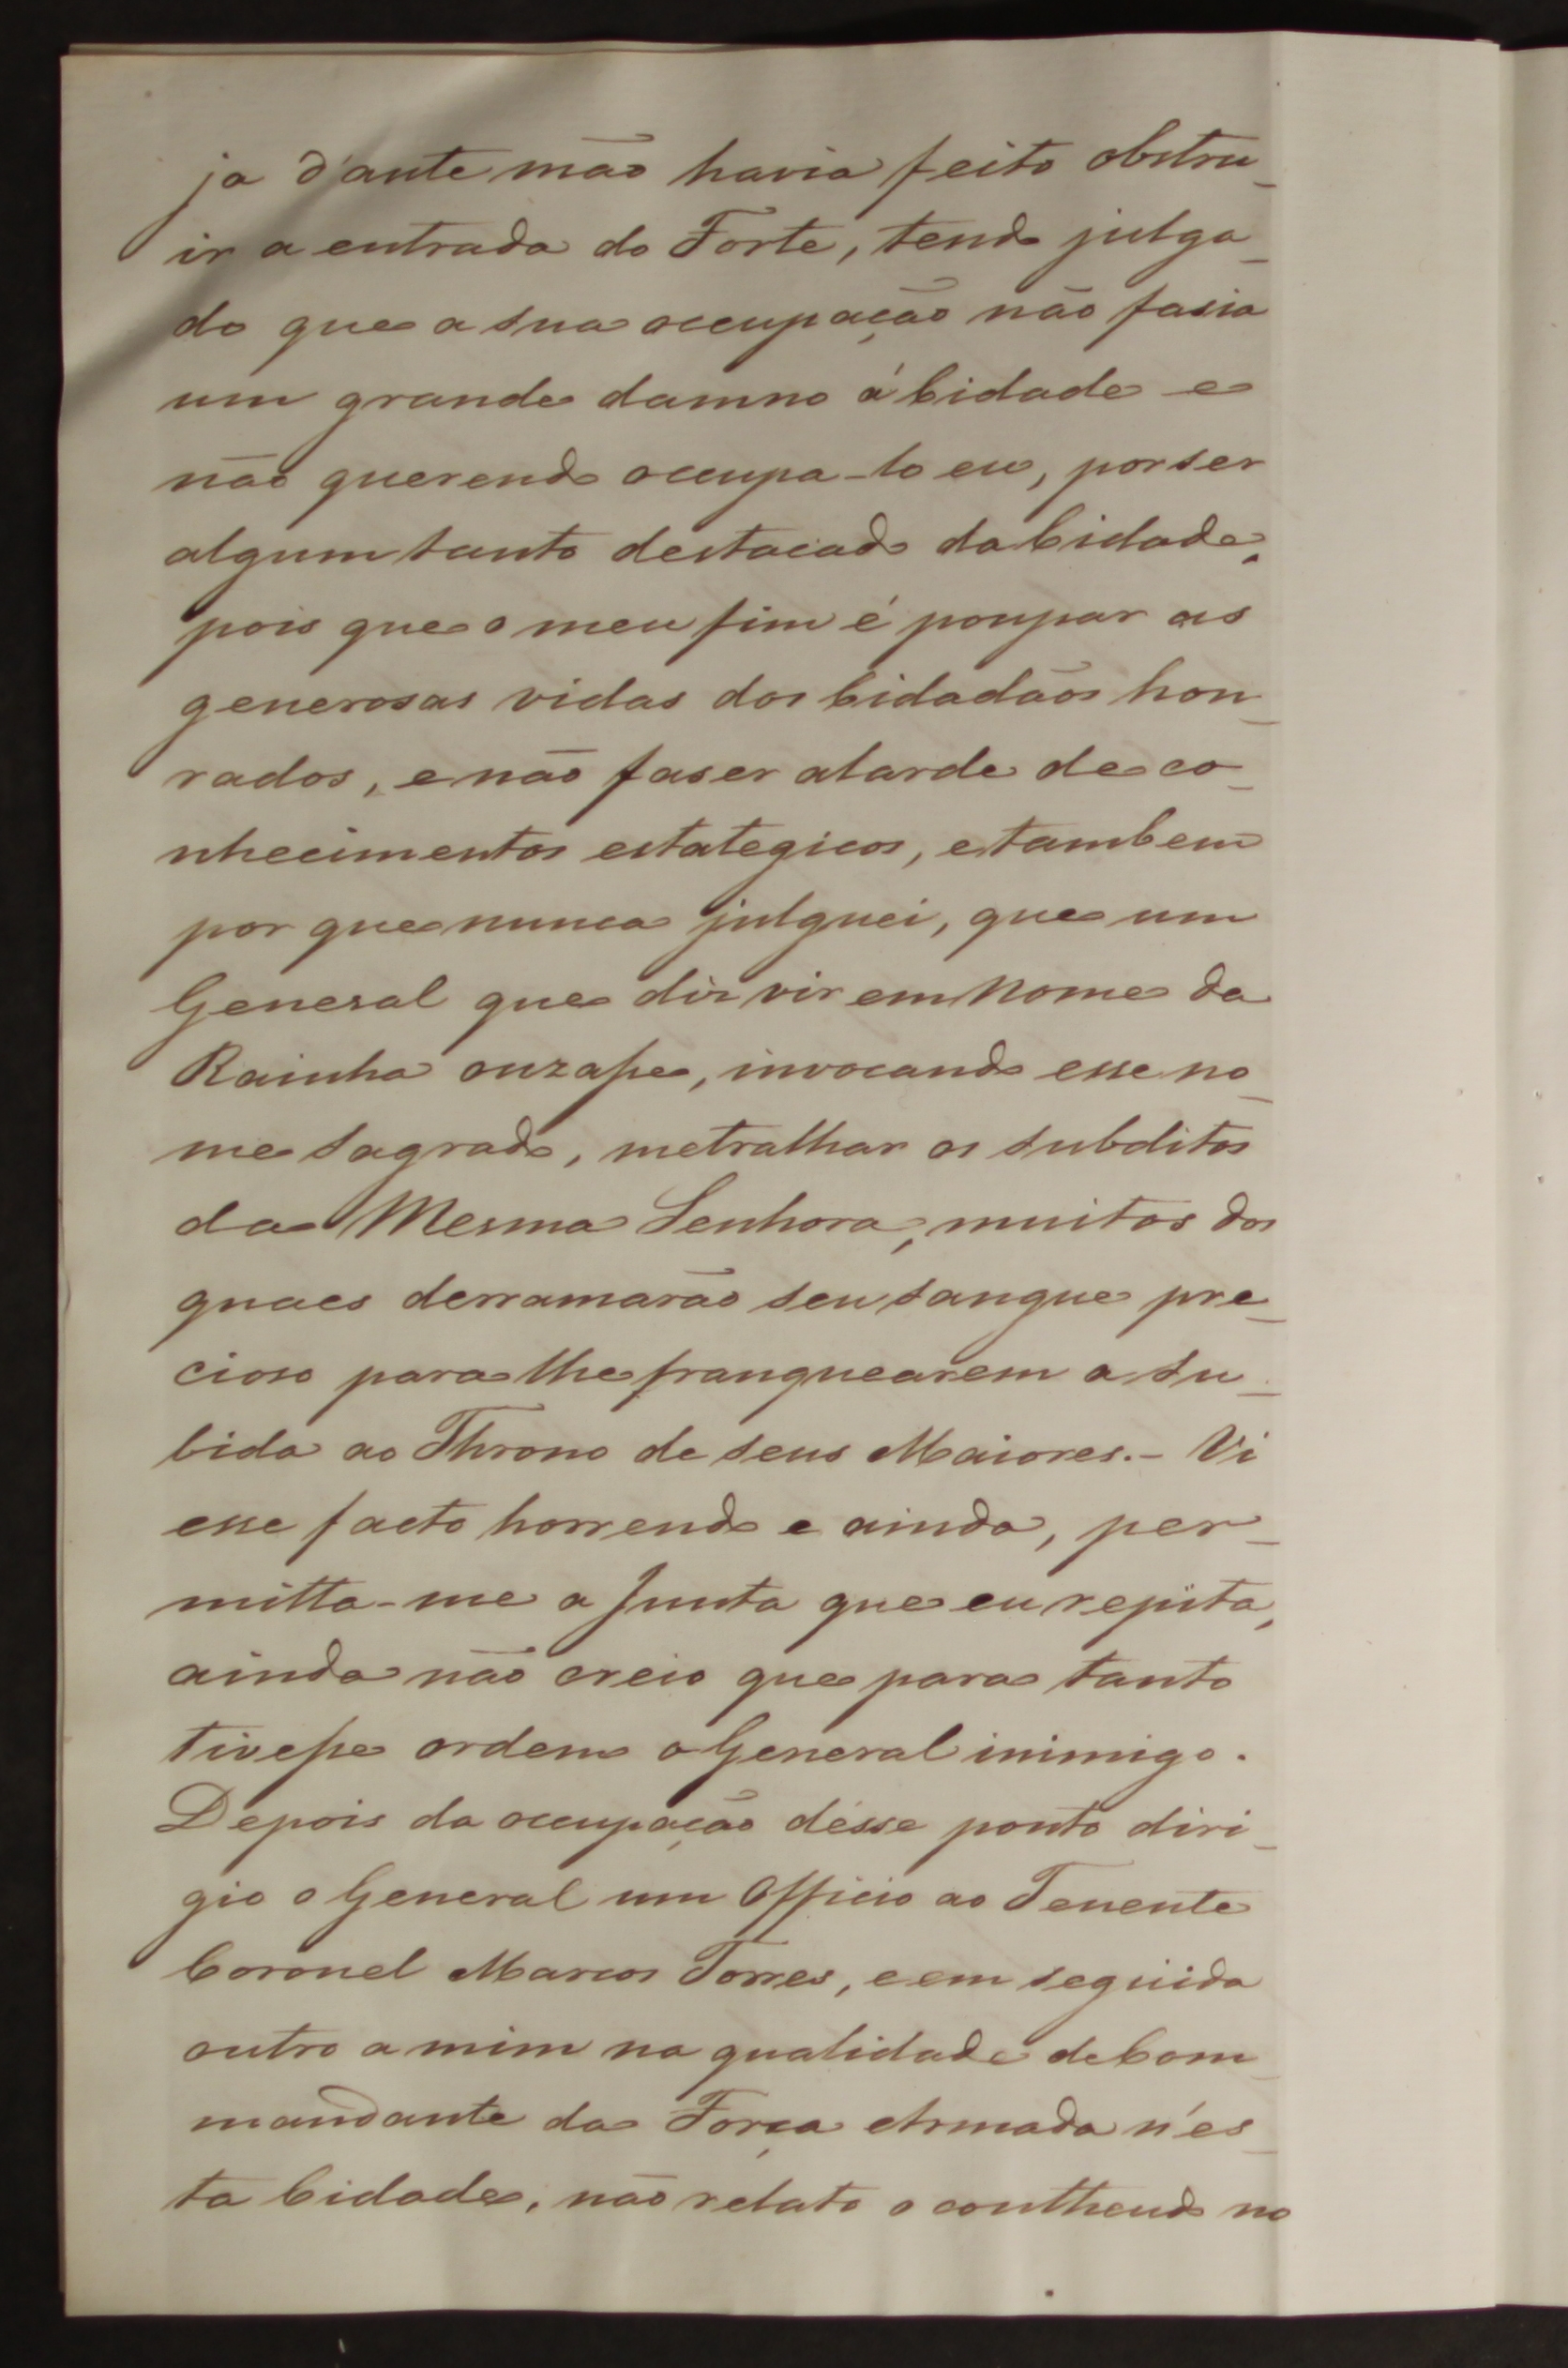 ja d'ante mão havia feito obstru_
ir a entrada do Forte, tendo julga_
do que a sua occupação não fasia
um grande damno á Cidade e
não querendo occupa-lo eu, por ser
algum tanto destacado da Cidade,
pois que o meu fim é poupar as
generosas vidas dos Cidadãos hon_
rados, e não faser alarde de co_
nhecimentos estategicos, e tambem
por que nunca julguei, que um
General que diz vir em Nome da
Rainha ouzasse, invocando esse no_
me sagrado, metralhar os subditos
da Mesma Senhora, muitos dos
quaes derramarão seu sangue pre_
cioso para lhe franquearem a su_
bida ao Throno de seus Maiores.- Vi
esse facto horrendo e ainda, per_
mitta-me a Junta que eu repita,
ainda não creio que para tanto
tivesse ordem o General inimigo.
Depois da occupação désse ponto diri_
gio o General um Officio ao Tenente
Coronel Marcos Torres, e em seguida
outro a mim na qualidade de Com_
mandante da Força Armada n'es_
ta Cidade, não relato o contheudo no